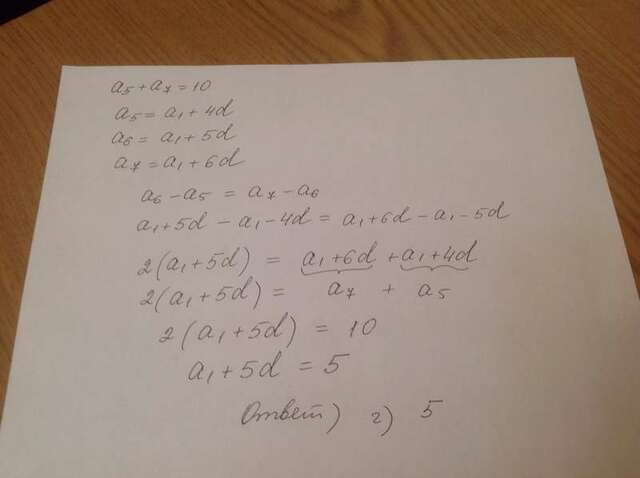 a₅+a₇=10
a₅=a₁+4d
a₆=a₁+5d
a₇=a₁+6d
a₆-a₅=a₇-a₆
a₁+5d-a₁-4d=a₁+6d-a₁-5d
2(a₁+5d)=a₁+6d+a₁+4d
2(a₁+5d)=a₇+a₅
2(a₁+5d)=10
a₁+5d=5
Ответ) г) 5